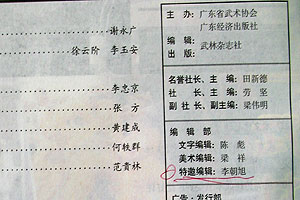 谢永广
徐云阶 李玉安
李忠京
张 方
黄建成
何轶群
范贵林
主 办：广东省武术协会
广东经济出版社
编 辑：
出 版：
武林杂志社
名誉社长、主 编：田新德
社 长、主 编：劳 坚
副 社 长、副主编：梁伟明
编 辑 部
文字编辑：陈 彪
美术编辑：梁 祥
特邀编辑：李朝旭
广告·发行部